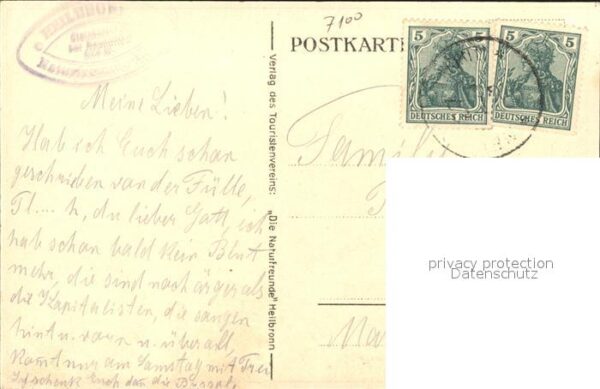 7100
POSTKARTE
5 5
5 5
DEUTSCHES REICH
DEUTSCHES REICH
HEILBRONN
Verlag des Touristenvereins: „Die Naturfreunde" Heilbronn
Meine Lieben!
Hab ich Euch schon
geschrieben von der Fülle,
Fl....h, du lieber Gott, ich
hab schon bald kein Blut
mehr, die sind noch ärger als
die Kapitalisten, die saugen
hint u. vorn u. überall,
kommt nur am Samstag mit
schenk Euch dan die
Familie
privacy protection
Datenschutz